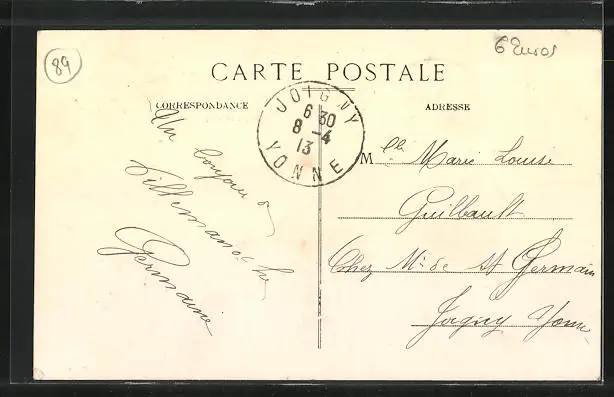 89
6 Euros
CARTE POSTALE
CORRESPONDANCE
ADRESSE
JOIGNY
6 30
8 - 4
13
YONNE
Un bonjour de
Villemanoche
Germaine
Mlle Marie Louise
Guilbault
Chez Mr de St Germain
Joigny Yonne